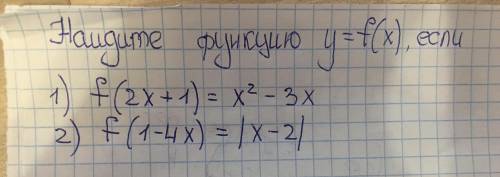 Найдите функцию y=f(x), если
1) f(2x+1) = x² - 3x
2) f(1-4x) = |x-2|